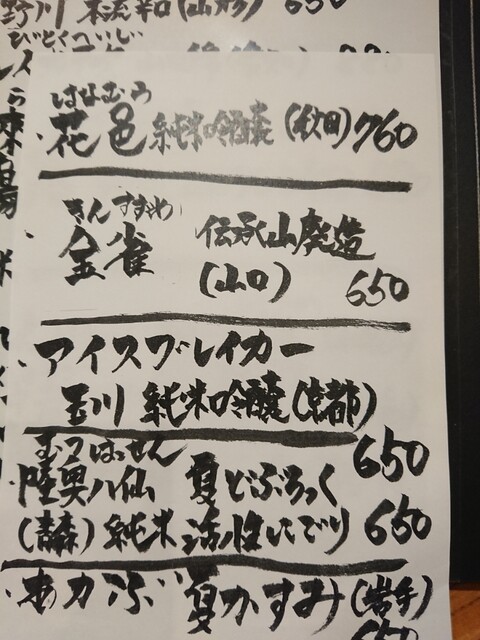 野川 本流辛口(山形) 650
はなむら
花邑 純米吟醸 (秋田) 760
きんすずめ
金雀 伝承山廃造
(山口) 650
アイスブレイカー
玉川 純米吟醸(京都)
650
むつはっせん
陸奥八仙 夏どぶろっく
(青森) 純米 活性にごり 650
あカぶ 夏かすみ(岩手)
650